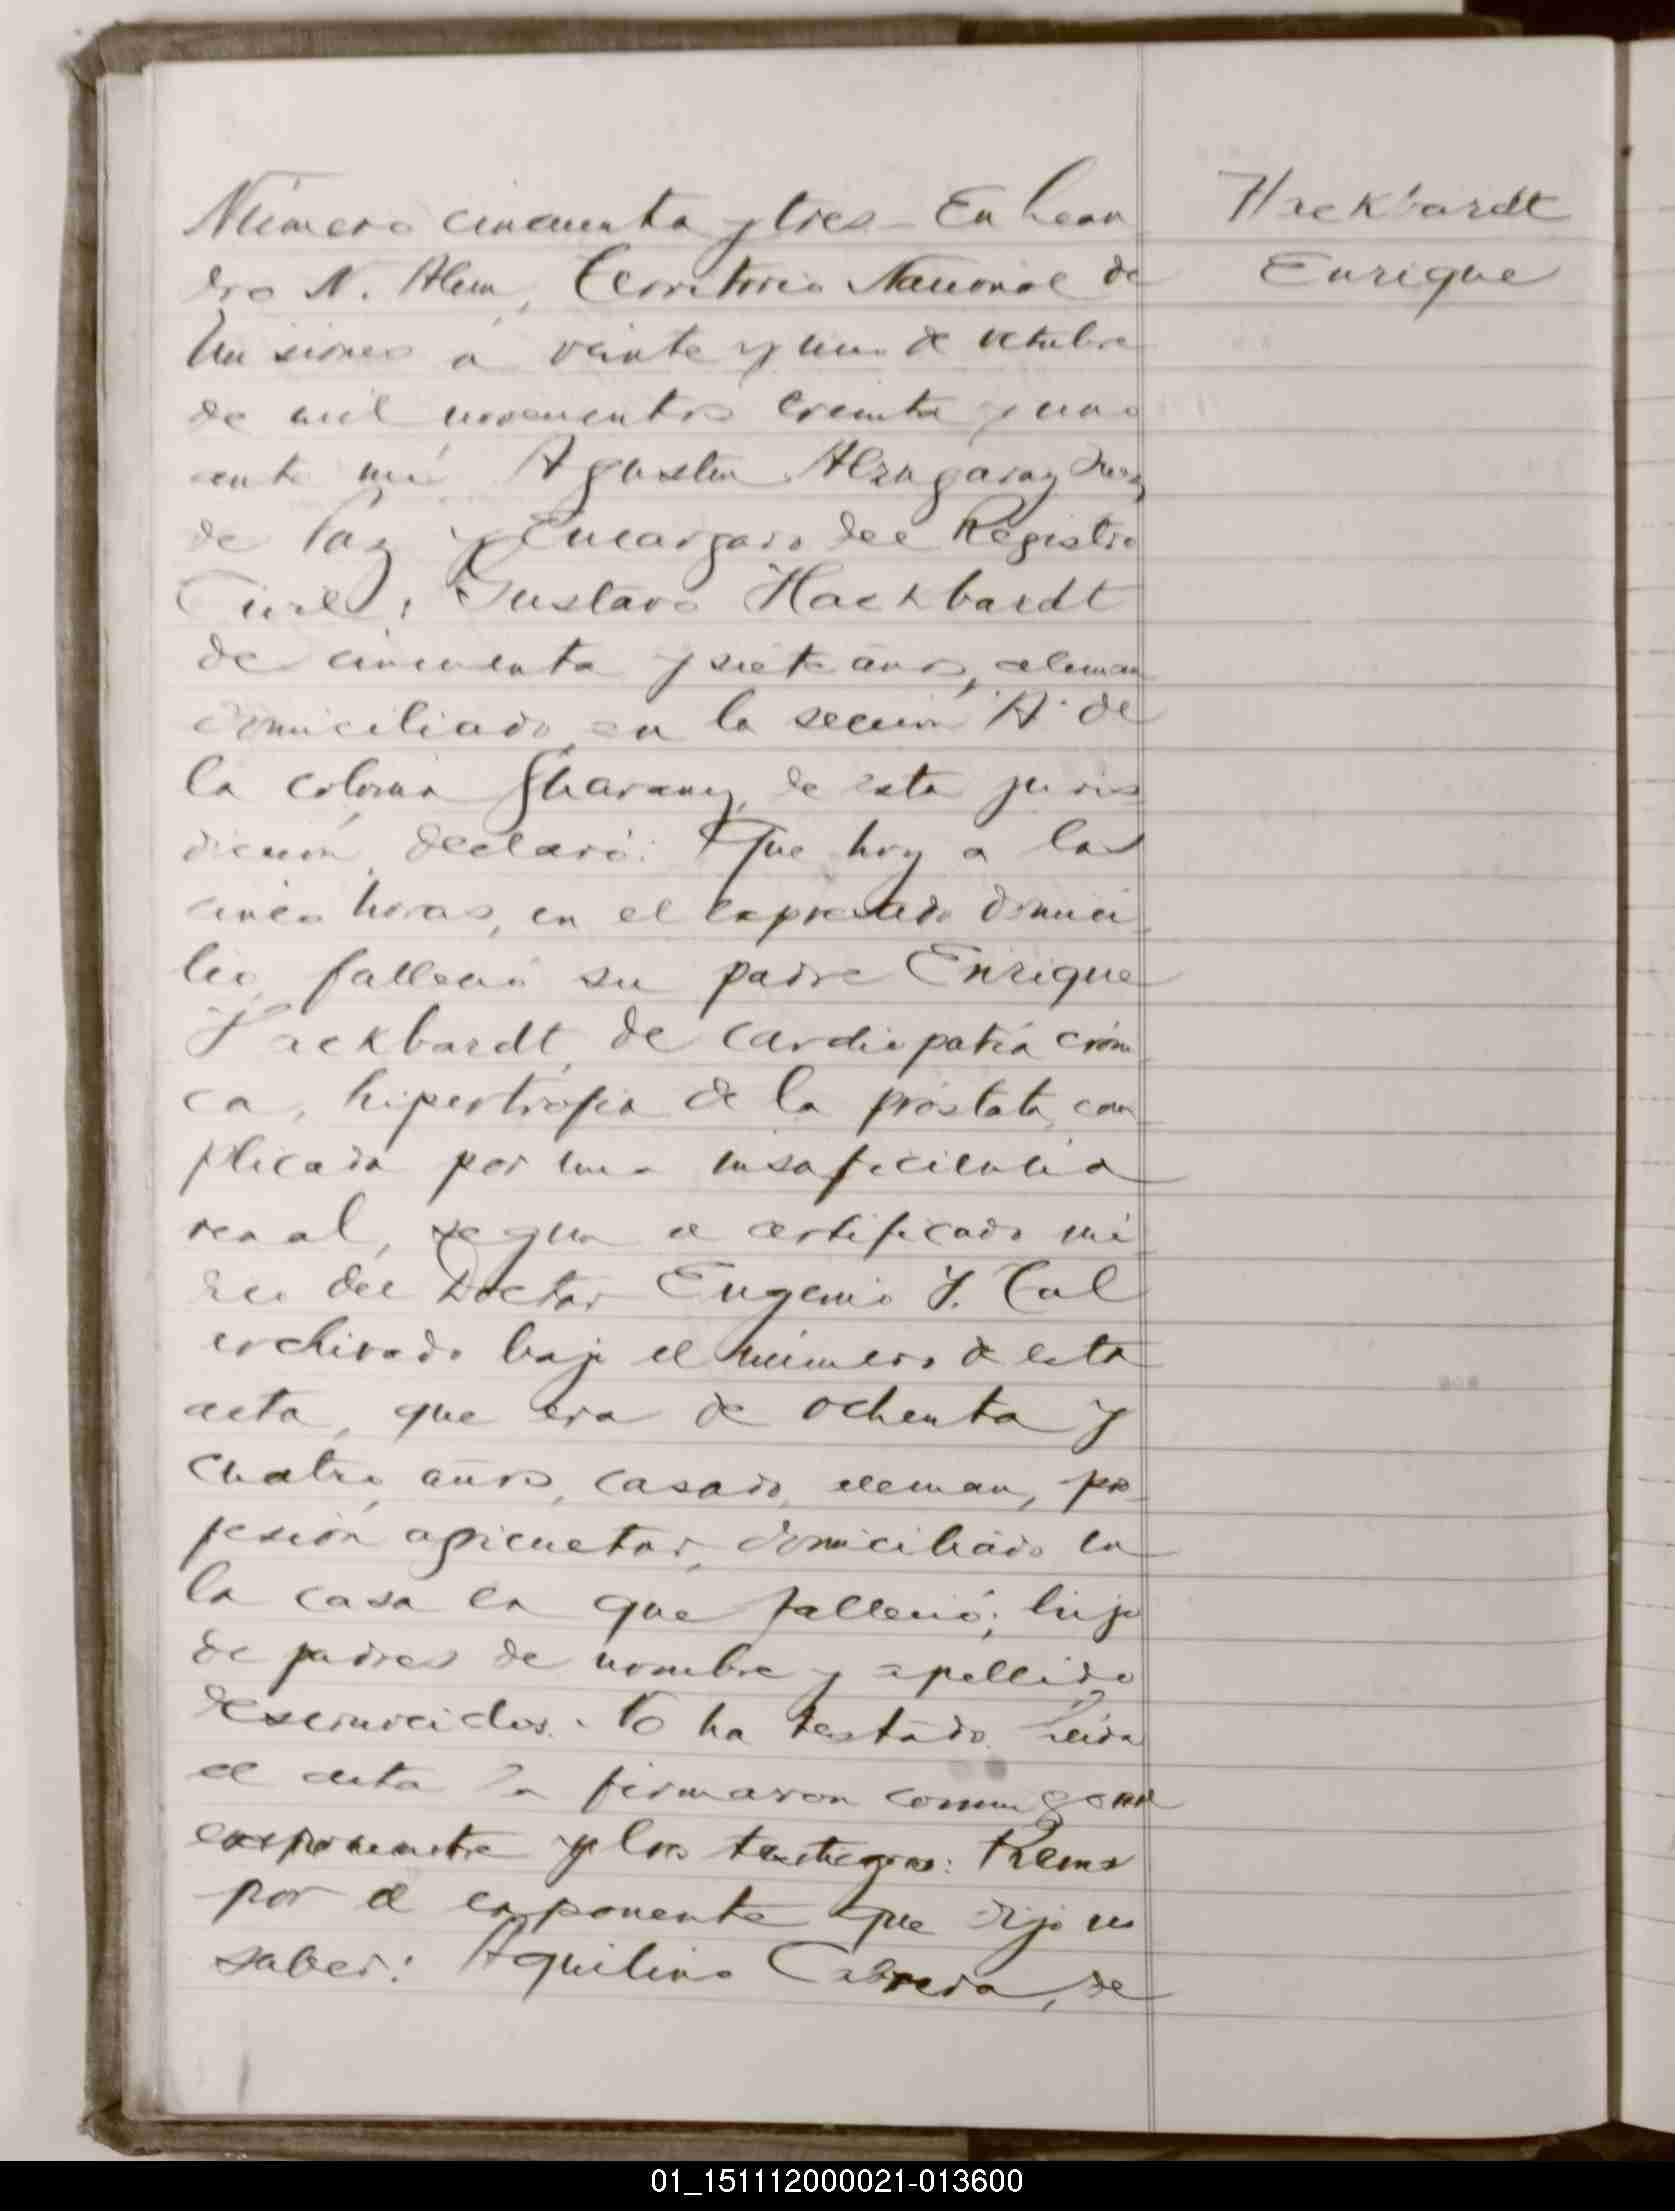 Número cincuenta y tres - En Lean
dro N. Alem, Territorio Nacional de
Misiones a veinte y uno de octubre
de mil novecientos treinta y uno
ante mí Agustin Alzugaray Juez
de Paz y Encargado del Registro
Civil; Gustavo Hackbardt
de cincuenta y siete años, aleman
domiciliado en la sección A. de
la colonia Gharany, de esta juris
dicción, declaró: Que hoy a las
cinco horas, en el expresado domici
lio falleció su padre Enrique
Hackbardt, de cardiopatía cróni
ca, hipertrofia de la próstata, com
plicada por una insuficiencia
renal, segun el certificado mé
del Doctor Eugenio J. Cal
archivado bajo el número de esta
acta, que era de ochenta y
cuatro años, casado, aleman, pro
fesión agricultor, domiciliado en
la casa en que falleció; hijo
de padres de nombre y apellido
desconocidos. No ha testado. Leida
el acta la firmaron conmigo el
exponente y los testigos:
por el exponente que dijo no
saber: Aquilino Cabrera, de
Hackbardt
Enrique
01_151112000021-013600